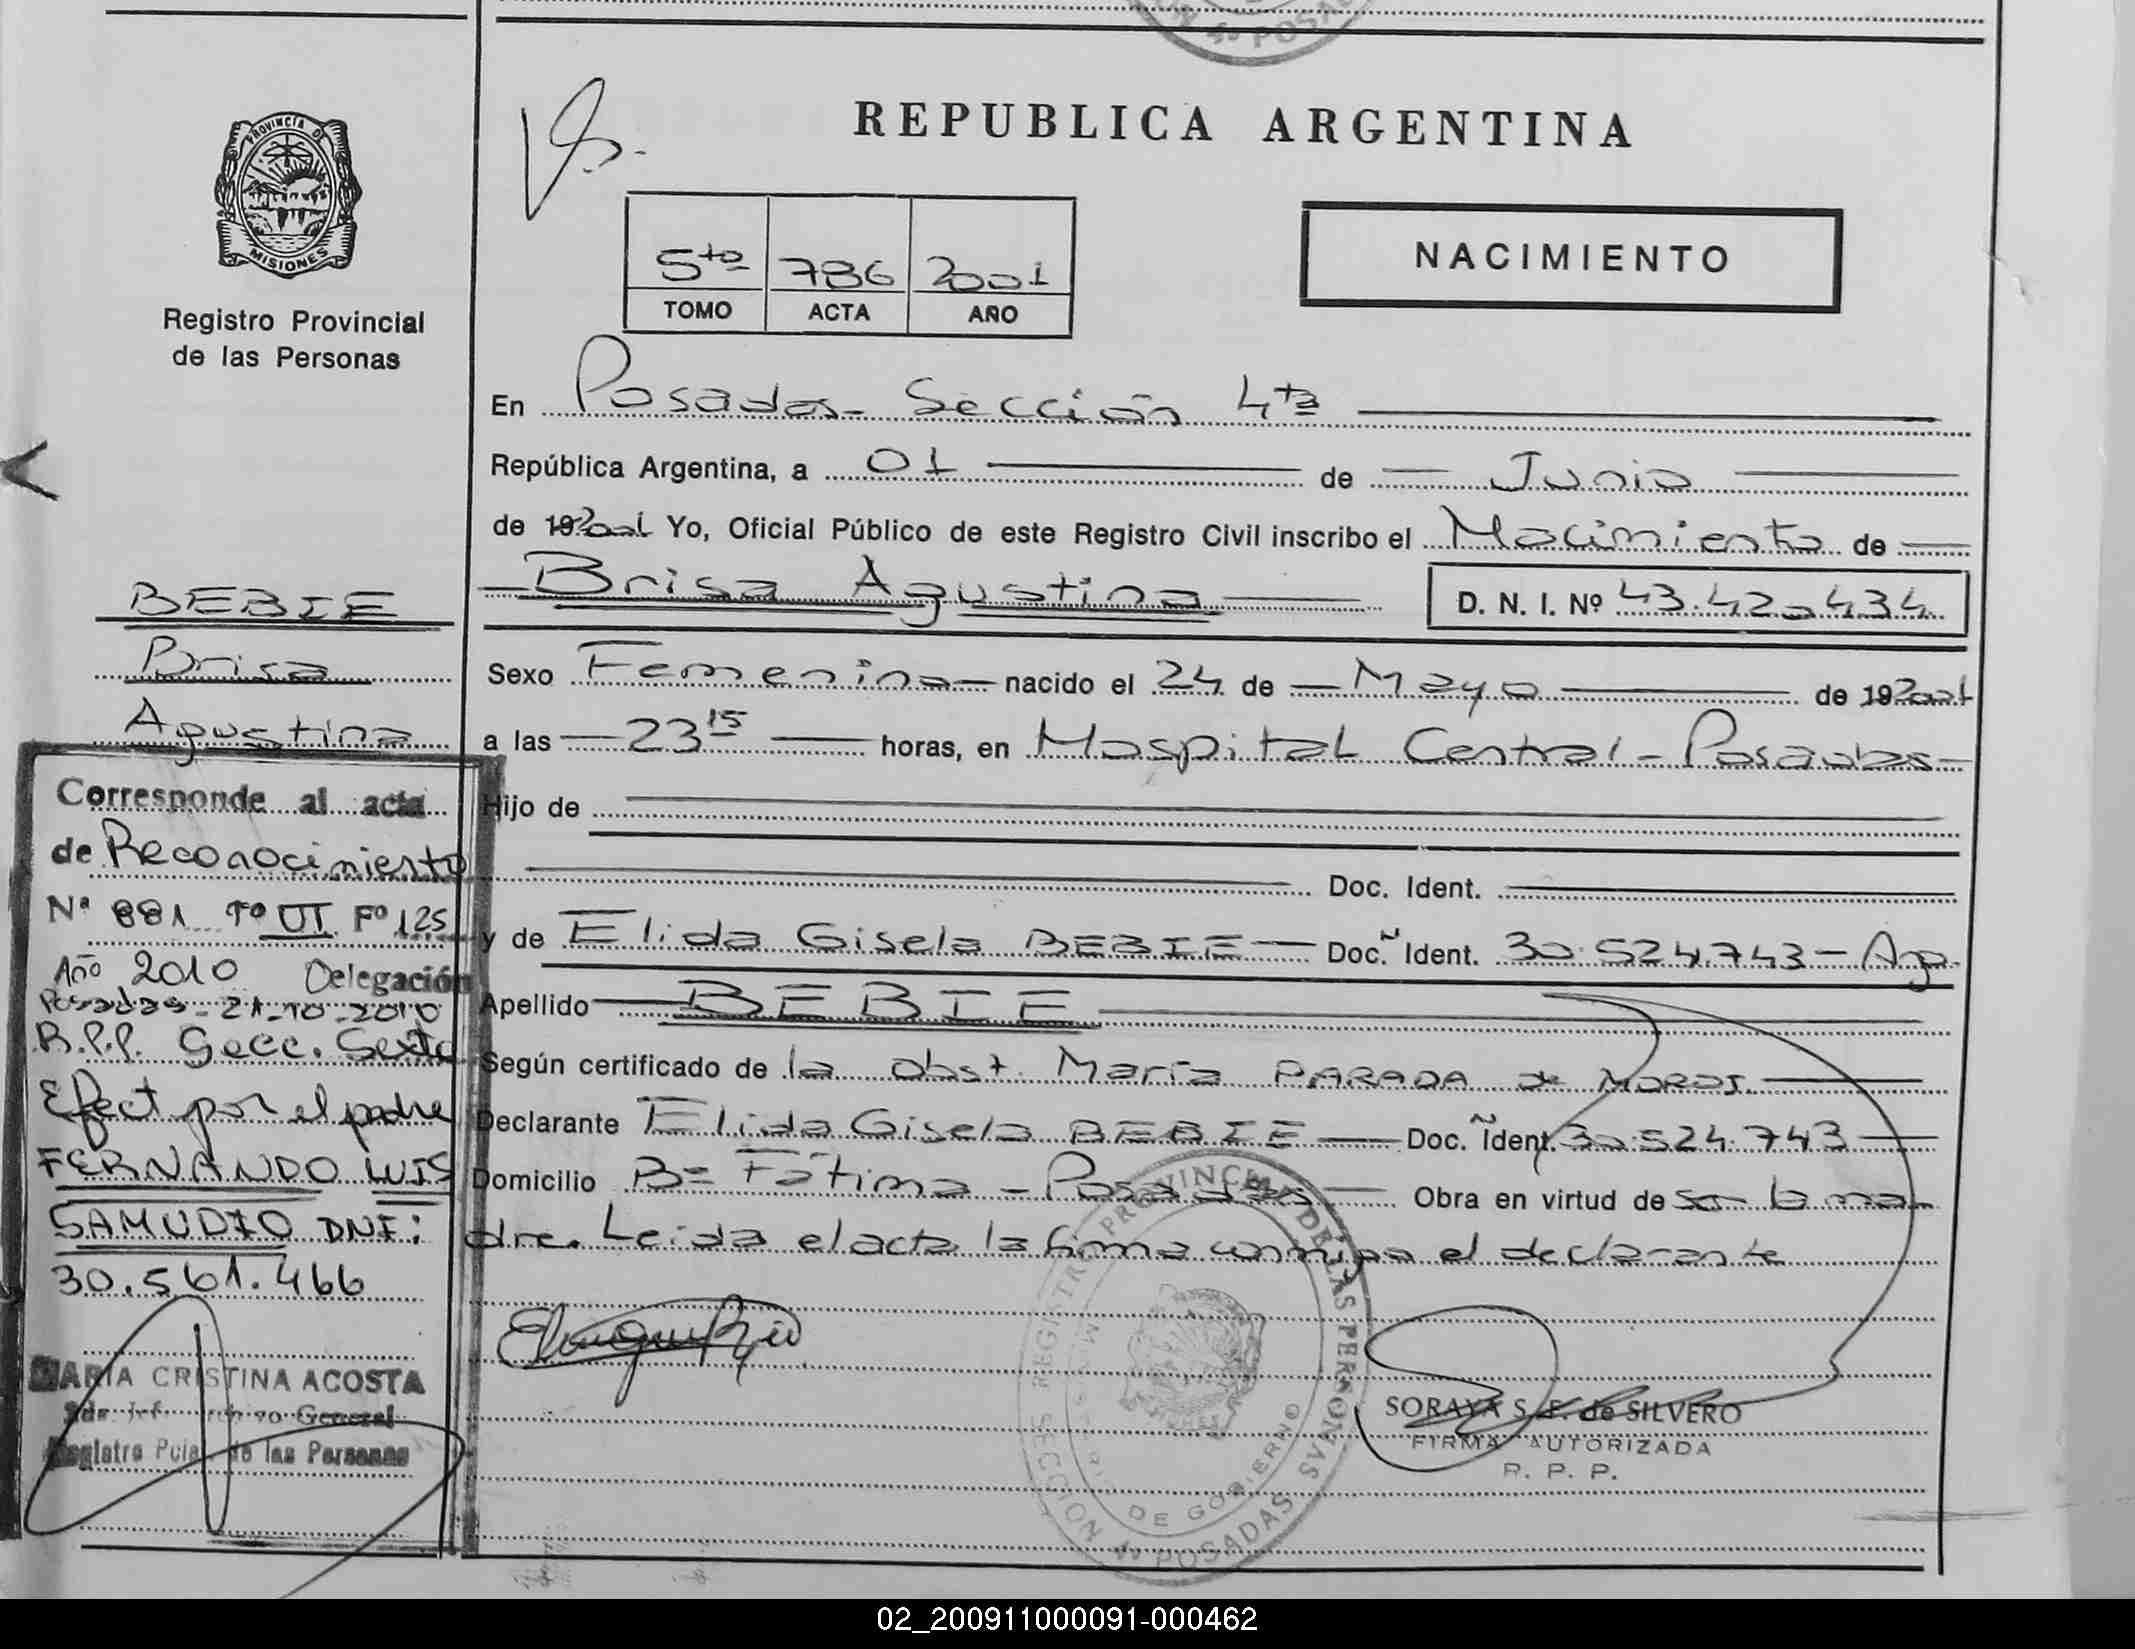 REPUBLICA ARGENTINA
PROVINCIA DE
MISIONES
Registro Provincial
de las Personas
5to 786 2001
TOMO ACTA AÑO
NACIMIENTO
En Posadas - Sección 4ta
República Argentina, a 01 de Junio
de 192001 Yo, Oficial Público de este Registro Civil inscribo el Nacimiento de
Brisa Agustina D. N. I. Nº 43.420.434
Sexo Femenino nacido el 24 de Mayo de 192001
a las 23 15 horas, en Hospital Central - Posadas
Hijo de
Doc. Ident.
y de Elida Gisela BEBIE Doc. Ident. 30.524.743 - Arg.
Apellido BEBIE
Según certificado de la obst. María PARADA de
Declarante Elida Gisela BEBIE Doc. Ident. 30.524.743
Domicilio Bº Fátima - Posadas Obra en virtud de ser la ma-
dre. Leida el acta la firma conmigo el declarante
SORAYA S. E. de SILVERO
FIRMA AUTORIZADA
R. P. P.
REGISTRO PROVINCIAL DE LAS PERSONAS
DE GOBIERNO
SECCION 4ta POSADAS
BEBIE
Brisa
Agustina
Corresponde al acta
de Reconocimiento
Nº 881 Tº VI Fº 125
Año 2010 Delegación
Posadas - 21-10-2010
R.P.P. Secc. Sexta
Efect por el padre
FERNANDO LUIS
SAMUDIO DNI:
30.561.466
MARIA CRISTINA ACOSTA
General
Registro Pcial de las Personas
02_200911000091-000462